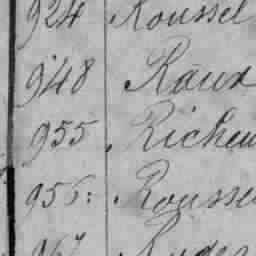 924 Roussel
948 Raux
955 Richeu
956: Rousse
967